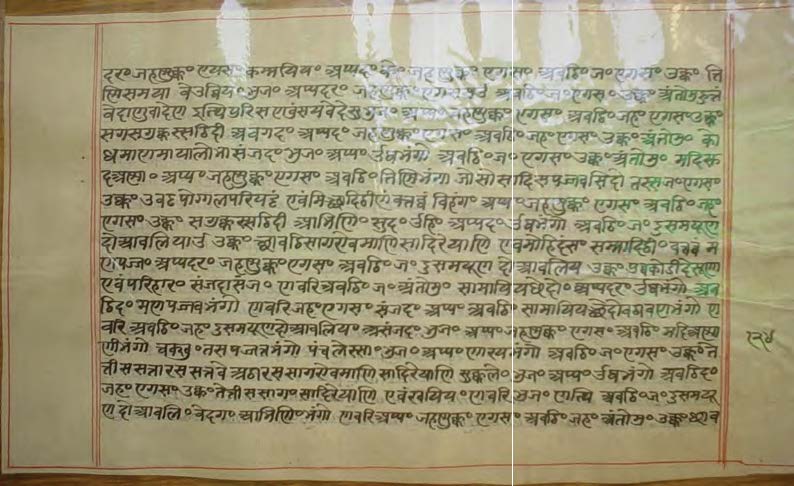 दर॰ जहणुक्क॰ एगस॰ कम्मयिय॰ अप्पद॰ जहणुक्क॰ एगस॰ अवठि॰ ज॰ एगस॰ उक्क॰ ति
ण्णिसमया वेउव्विय॰ भुज॰ अप्पदर॰ जहणुक्क॰ एगस॰ अवठि॰ ज॰ एगस॰ उक्क॰ अंतोमुहुत्तं
वेदाणुवादेण इत्थिपुरिस भुज॰ अप्प॰ जहणुक्क॰ एगस॰ अवठि॰ जह॰ एगस॰ उक्क॰
सगसगुक्कस्सठिदी अवगद॰ अप्पद॰ जहणुक्क॰ एगस॰ अवठि॰ जह॰ एगस॰ उक्क॰ अंतोमु॰ को
धमाणमायालोभा संजद॰ भुज॰ अप्प॰ उघभंगो अवठि॰ ज॰ एगस॰ उक्क॰ अंतोमु॰ मदिसु
दअण्णा॰ अप्प॰ जहणुक्क॰ एगस॰ अवठि॰ तिण्णिभंगा जो सो सादिसपज्जवसिदो तस्स ज॰ एगस॰
उक्क॰ उवड्ढपोग्गलपरियट्टं एवंमिच्छादिठी विहंग॰ अप्प॰ जहणुक्क॰ एगस॰ अवठि॰ जह॰
एगस॰ उक्क॰ सगुक्कस्सठिदी आभिणि॰ सुद॰ उहि॰ अप्पद॰ उघभंगो अवठि॰ ज॰ दुसमयूण
दोआवलियाउ उक्क॰ छावठिसागरोवमाणि सादिरेयाणि एवमोहिदंस॰ सम्मादिठी॰ म
णपज्ज॰ अप्पदर॰ जहणुक्क॰ एगस॰ अवठि॰ ज॰ दुसमयूण दोआवलिय॰ उक्क॰ पुव्वकोडीदेसूणा
एवं परिहार॰ संजदासंज॰ णवरि अवठि॰ ज॰ अंतोमु॰ सामायियछेदो॰ अप्पदर॰ उघभंगो अव
ठिद॰ मणपज्जवभंगो णवरि जह॰ एगस॰ संजद॰ अप्प॰ अवठि॰ सामायियछेदोवठावणभंगो ण
वरि अवठि॰ जह॰ दुसमयूणदोआवलिय॰ असंजद॰ भुज॰ अप्प॰ जहणुक्क॰ एगस॰ अवठि॰ मदिअण्णा
णीभंगो चक्खु॰ तसपज्जत्तभंगो पंचलेस्सा॰ भुज॰ अप्प॰ भंगो अवठि॰ ज॰ एगस॰ उक्क॰ ते
त्तीससत्तारससत्तबे अठारससागरोवमाणि सादिरेयाणि सुक्कले॰ भुज॰ अप्प॰ उघभंगो अवठिद॰
जह॰ एगस॰ उक्क॰ तेत्तीससाग॰ सादिरेयाणि एवं खयिय॰ णवरि भुज॰ णत्थि अवठि॰ ज॰ दुसमयू
ण दोआवलि॰ वेदग॰ आभिणि॰ भंगो णवरि अप्प॰ जहणुक्क॰ एगस॰ अवठि॰ जह॰ अंतोमु॰ उक्क॰ छाव